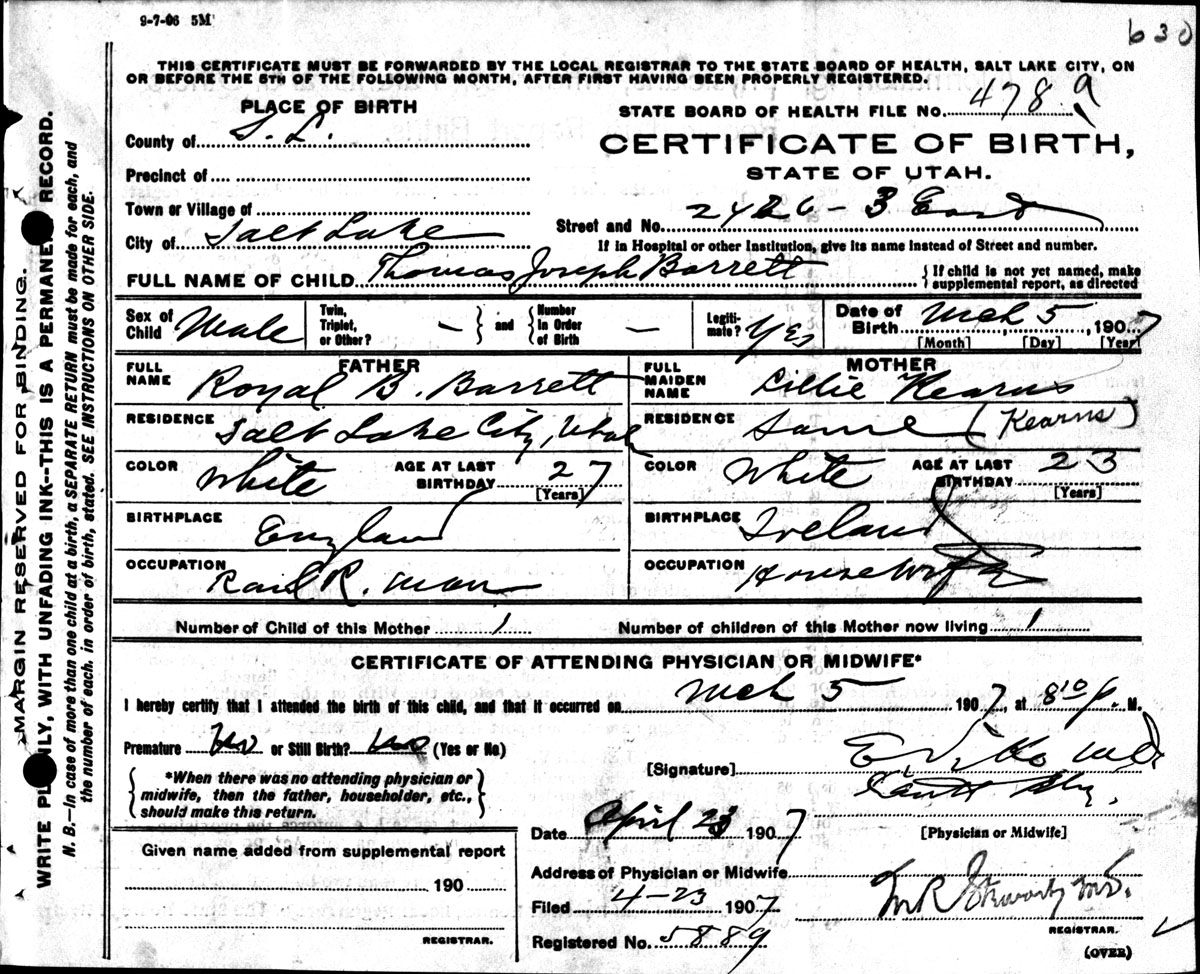 9-7-06 5M
630
THIS CERTIFICATE MUST BE FORWARDED BY THE LOCAL REGISTRAR TO THE STATE BOARD OF HEALTH, SALT LAKE CITY, ON
OR BEFORE THE 5TH OF THE FOLLOWING MONTH, AFTER FIRST HAVING BEEN PROPERLY REGISTERED.
PLACE OF BIRTH
STATE BOARD OF HEALTH FILE No. 4789
County of S. L.
CERTIFICATE OF BIRTH,
Precinct of
STATE OF UTAH.
Town or Village of
Street and No. 2426 - 3 East
City of Salt Lake
If in Hospital or other Institution, give its name instead of Street and number.
FULL NAME OF CHILD Thomas Joseph Barrett
If child is not yet named, make supplemental report, as directed
Sex of Child Male
Twin, Triplet, or Other? — and Number in Order of Birth —
Legitimate? Yes
Date of Birth Mch 5, 1907
[Month] [Day] [Year]
FATHER
FULL NAME Royal B. Barrett
RESIDENCE Salt Lake City, Utah
COLOR White AGE AT LAST BIRTHDAY 27 [Years]
BIRTHPLACE England
OCCUPATION Rail R. man
MOTHER
FULL MAIDEN NAME Lillie Kearns
RESIDENCE Same (Kearns)
COLOR White AGE AT LAST BIRTHDAY 23 [Years]
BIRTHPLACE Ireland
OCCUPATION Housewife
Number of Child of this Mother 1 Number of children of this Mother now living 1
CERTIFICATE OF ATTENDING PHYSICIAN OR MIDWIFE*
I hereby certify that I attended the birth of this child, and that it occurred on Mch 5 1907, at 8 10 P. M.
Premature No or Still Birth? No (Yes or No)
*When there was no attending physician or
midwife, then the father, householder, etc.,
should make this return.
[Signature]
[Physician or Midwife]
Date April 23 1907
Given name added from supplemental report
190
REGISTRAR.
Address of Physician or Midwife
Filed 4-23 1907
Registered No. 5889
REGISTRAR.
(OVER)
MARGIN RESERVED FOR BINDING.
WRITE PLAINLY, WITH UNFADING INK--THIS IS A PERMANENT RECORD.
N. B.—In case of more than one child at a birth, a SEPARATE RETURN must be made for each, and
the number of each, in order of birth, stated. SEE INSTRUCTIONS ON OTHER SIDE.